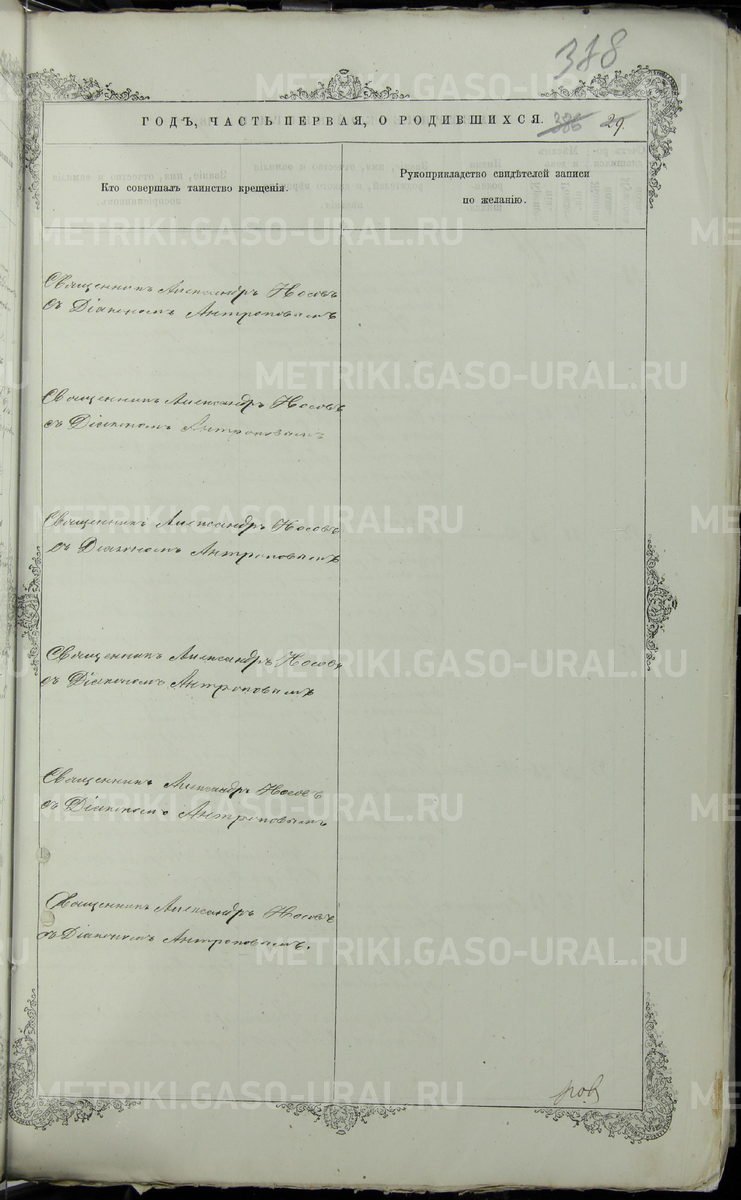 378
ГОДЪ, ЧАСТЬ ПЕРВАЯ, О РОДИВШИХСЯ. 386 29.
Кто совершалъ таинство крещенія.
Рукоприкладство свидѣтелей записи
по желанію.
Священникъ Александръ Носовъ
съ Діакономъ Антроповымъ
Священникъ Александръ Носовъ
съ Діакономъ Антроповымъ
Священникъ Александръ Носовъ
съ Діакономъ Антроповымъ
Священникъ Александръ Носовъ
съ Діакономъ Антроповымъ
Священникъ Александръ Носовъ
съ Діакономъ Антроповымъ
Священникъ Александръ Носовъ
съ Діакономъ Антроповымъ.
ров
METRIKI.GASO-URAL.RU